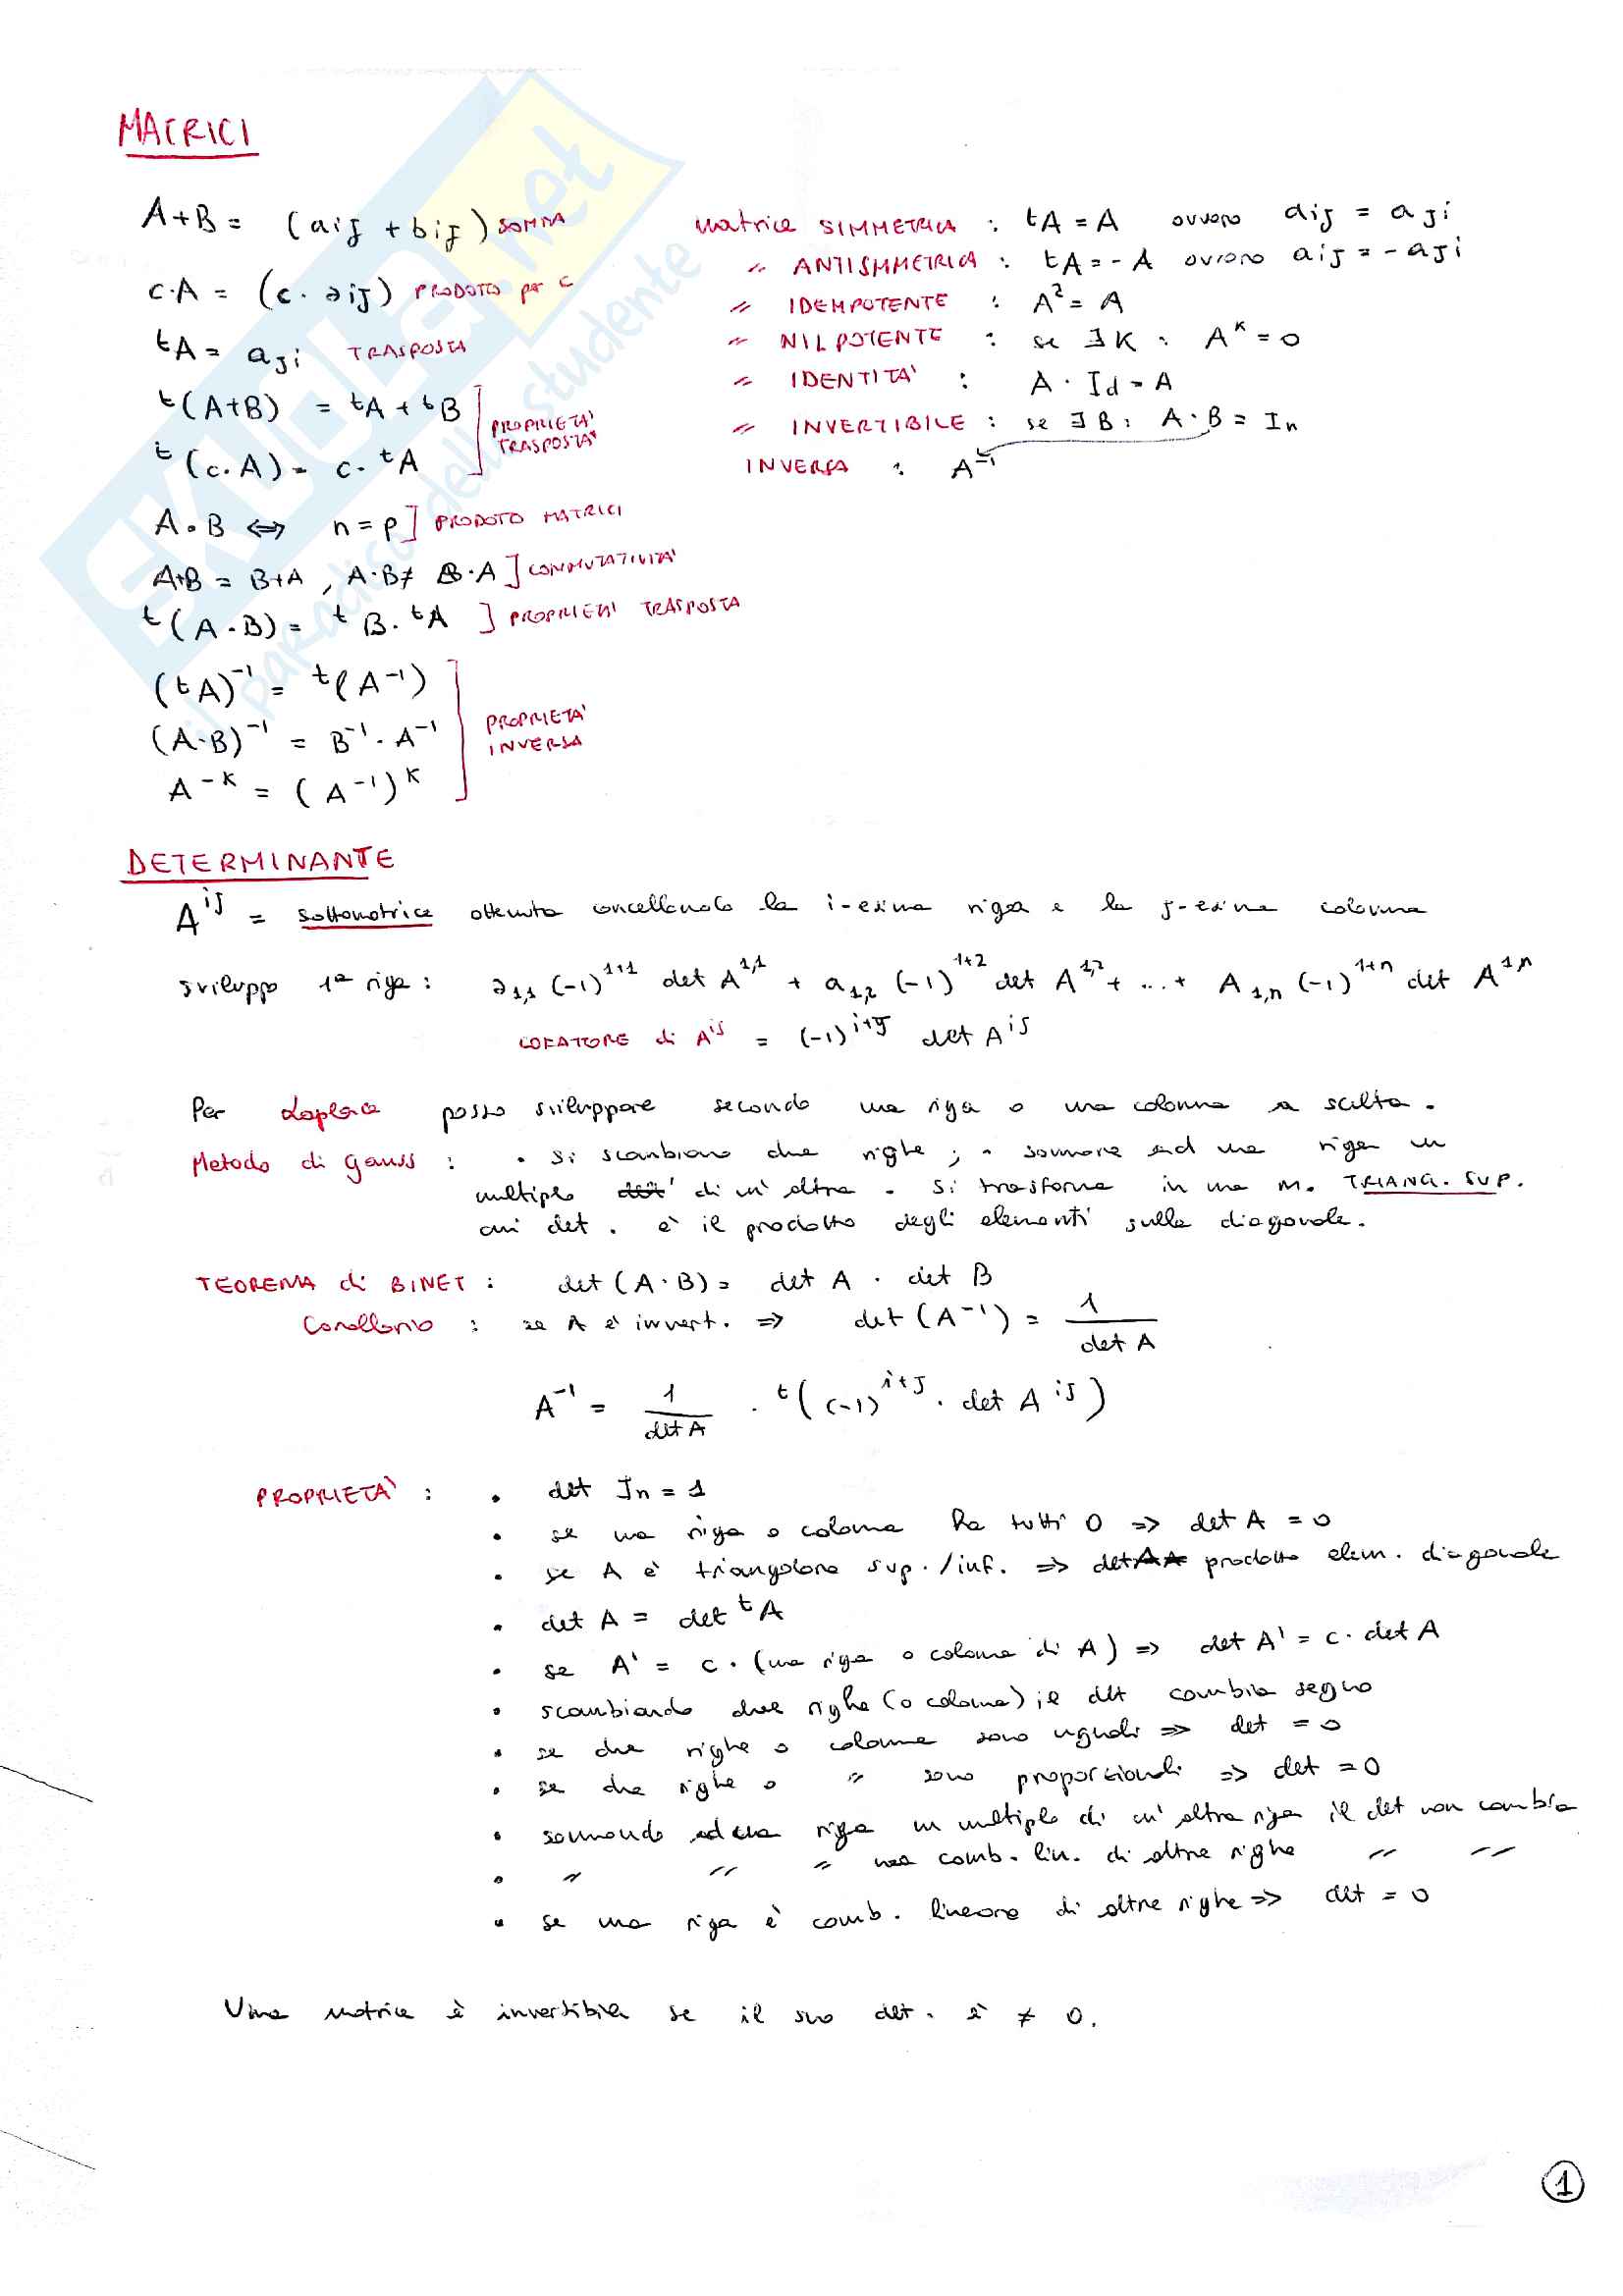 MATRICI
A+B = (aij + bij) SOMMA
c·A = (c·aij) PRODOTTO per c
tA = aji TRASPOSTA
t(A+B) = tA + tB
t(c·A) = c·tA
PROPRIETA' TRASPOSTA
A·B ⇔ n=p ] PRODOTO MATRICI
A+B = B+A, A·B≠ B·A ] COMMUTATIVITA'
t(A·B) = tB·tA ] PROPRIETA' TRASPOSTA
(tA)⁻¹ = t(A⁻¹)
(A·B)⁻¹ = B⁻¹·A⁻¹
A⁻ᴷ = (A⁻¹)ᴷ
PROPRIETA' INVERSA
Matrice SIMMETRICA : tA = A ovvero aij = aji
" ANTISIMMETRICA : tA = -A ovvero aij = -aji
" IDEMPOTENTE : A² = A
" NILPOTENTE : se ∃K : Aᴷ = 0
" IDENTITA' : A · Id = A
" INVERTIBILE : se ∃B: A·B = In
INVERSA : A⁻¹
DETERMINANTE
Aⁱʲ = sottomatrice ottenuta cancellando la i-esima riga e la j-esima colonna
sviluppo 1ª riga : a1,1 (-1)¹⁺¹ det A¹,¹ + a1,2 (-1)¹⁺² det A¹,² + ... + A1,n (-1)¹⁺ⁿ det A¹,ⁿ
COFATORE di Aⁱʲ = (-1)ⁱ⁺ʲ det Aⁱʲ
Per Laplace posso sviluppare secondo una riga o una colonna a scelta.
Metodo di Gauss : • si scambiano due righe ; • sommare ad una riga un
multiplo di un'altra. Si trasforma in una M. TRIANG. SUP.
cui det. è il prodotto degli elementi sulla diagonale.
TEOREMA di BINET : det(A·B) = det A · det B
Corollario : se A è invert. ⇒ det(A⁻¹) = 1/det A
A⁻¹ = 1/det A · t((-1)ⁱ⁺ʲ · det Aⁱʲ)
PROPRIETA' : • det In = 1
• se una riga o colonna ha tutti 0 ⇒ det A = 0
• se A è triangolare sup./inf. ⇒ det prodotto elem. diagonale
• det A = det tA
• se A' = c·(una riga o colonna di A) ⇒ det A' = c·det A
• scambiando due righe (o colonne) il det cambia segno
• se due righe o colonne sono uguali ⇒ det = 0
• se due righe o " sono proporzionali ⇒ det = 0
• sommando ad una riga un multiplo di un'altra riga il det non cambia
• " " " una comb. lin. di altre righe " "
• se una riga è comb. lineare di altre righe ⇒ det = 0
Una matrice è invertibile se il suo det. è ≠ 0.
1
SKUOLA.net
il paradiso dello studente